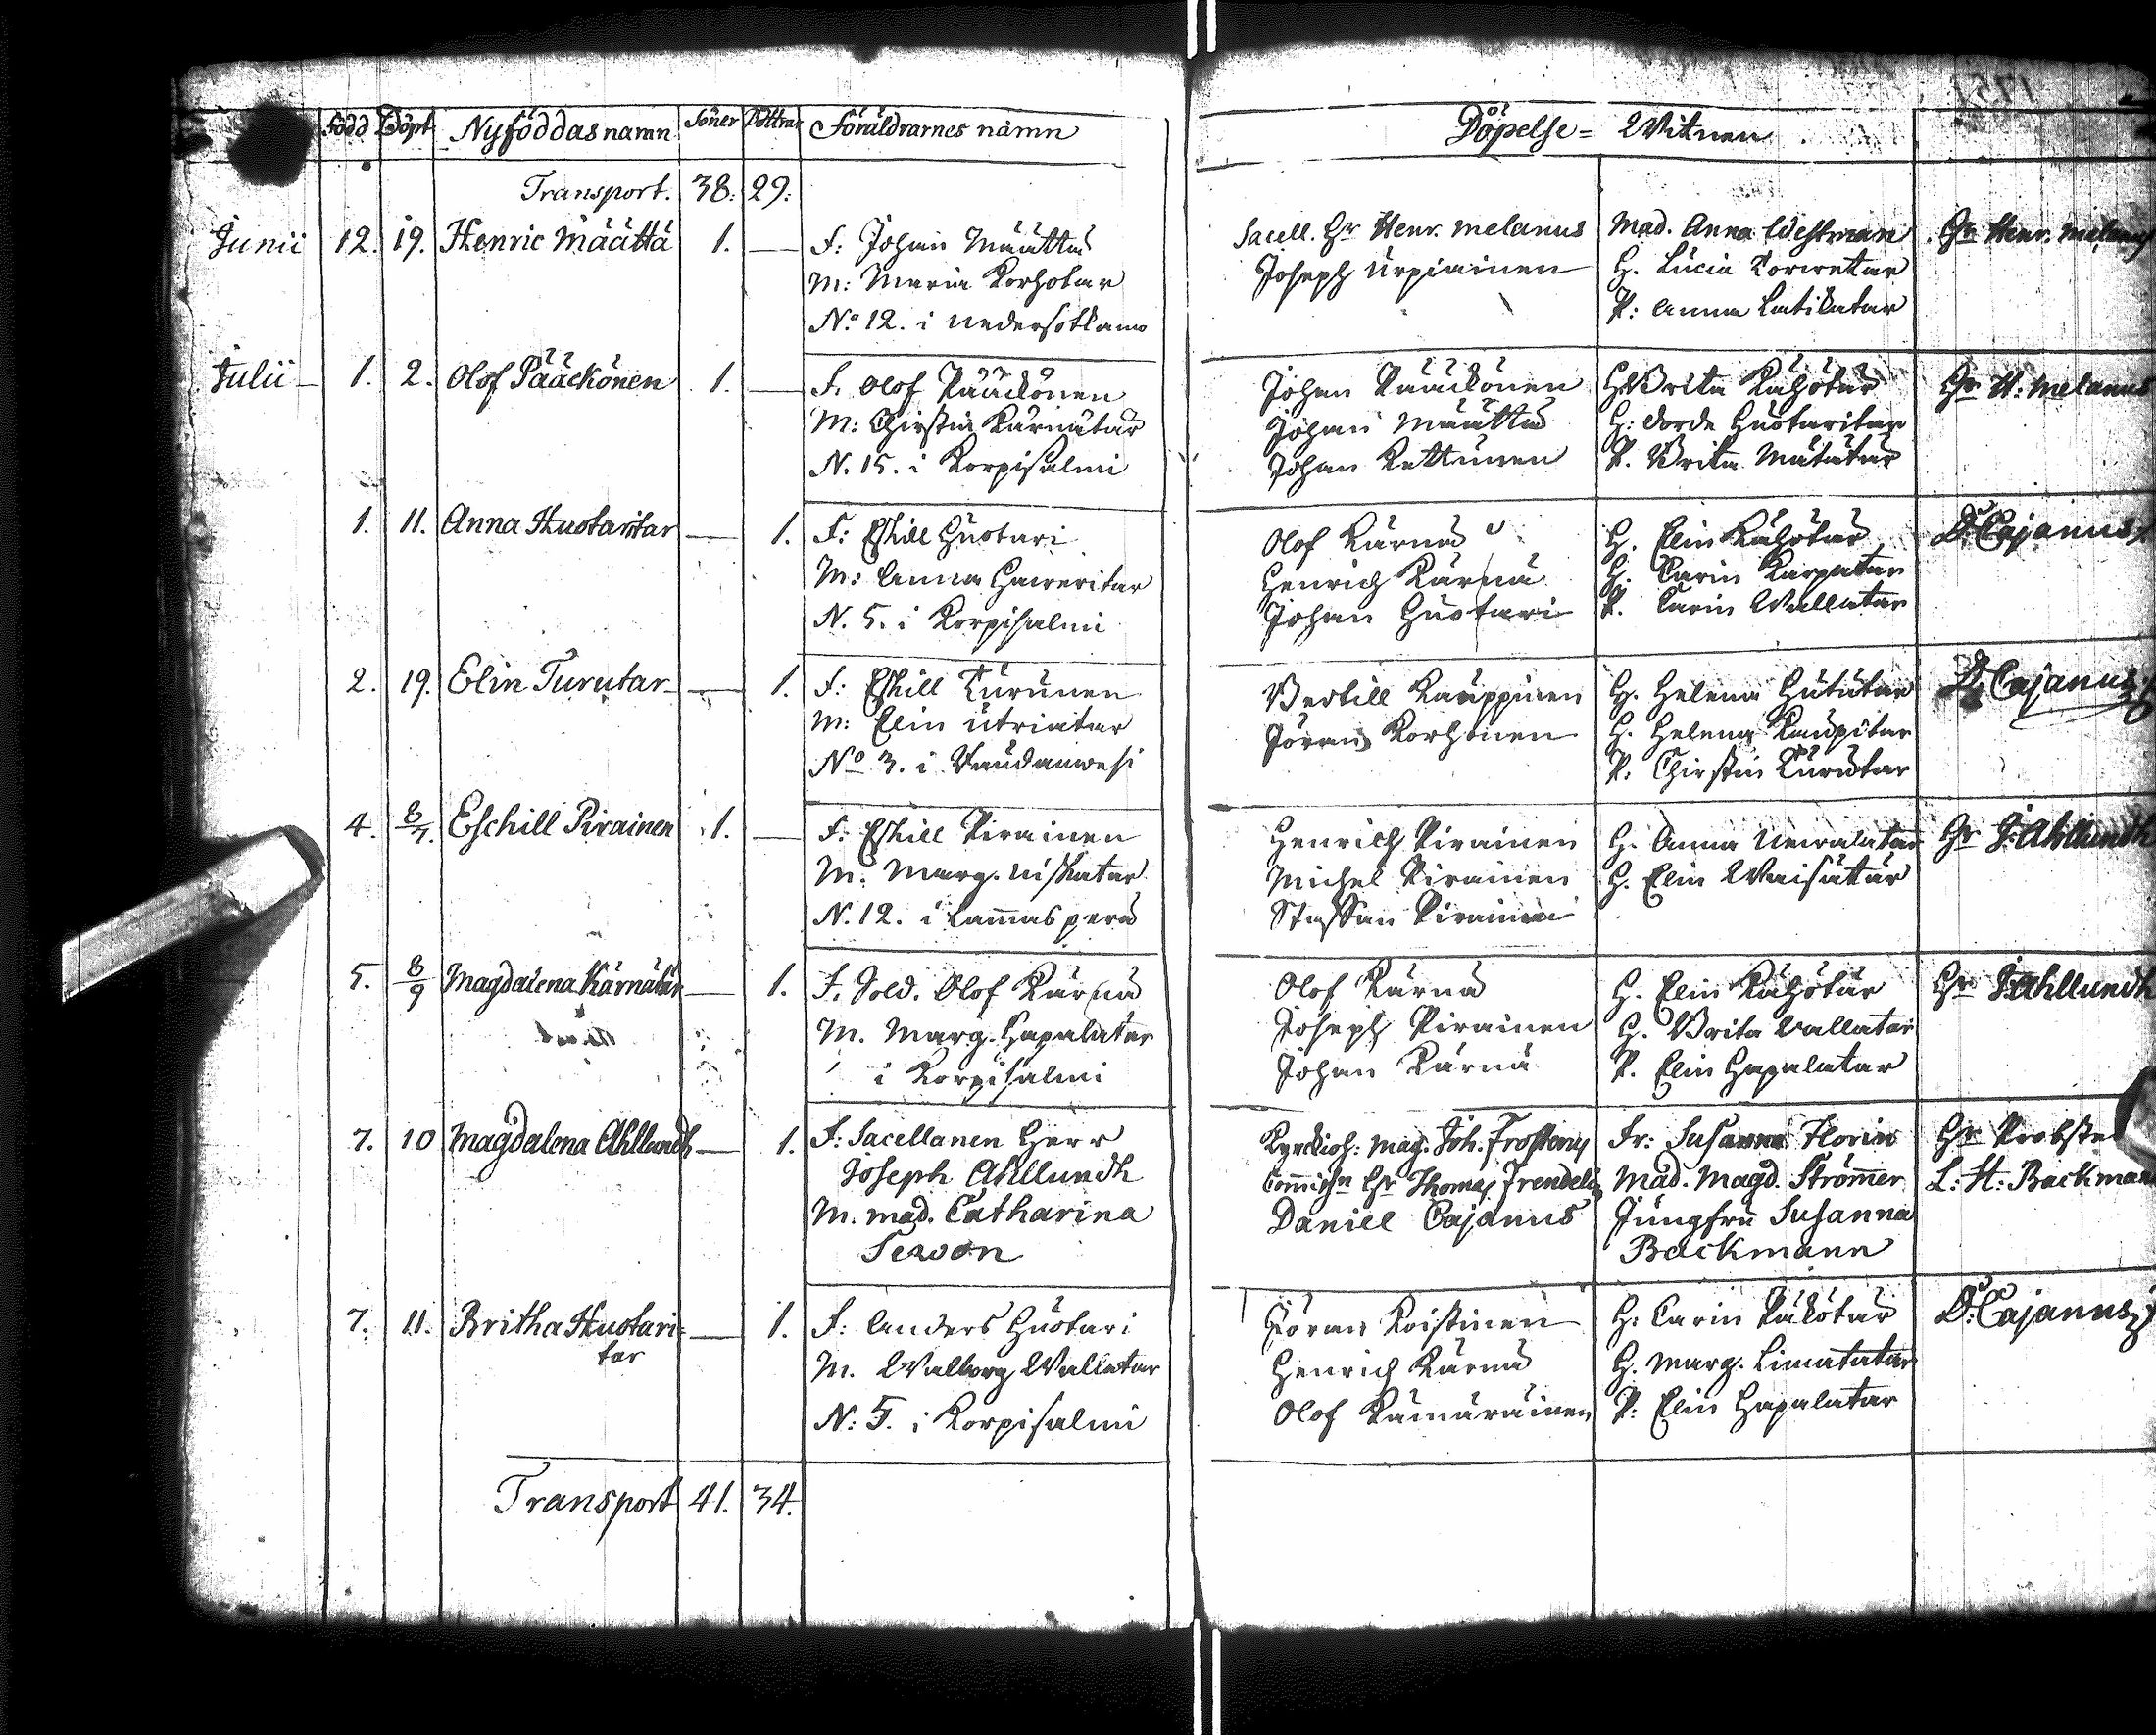 Född Döpt Nyföddas namn Söner Döttrar Föräldrarnes namn Döpelse = Witnen
Transport. 38. 29.
Junii 12. 19. Henric Määttä 1. — F: Johan Määttä
M: Maria Korhotar
N:o 12. i Nedersotkamo
Sacell. Hr Henr. Melanus
Joseph Urpiainen
Mad. Anna Westman
H. Lucia Torwetar
P: Anna Latikatar
Hr Henr. Melanus
Julii — 1. 2. Olof Pääckönen 1. — F. Olof Pääckönen
M: Chirstin Kärnätär
N. 15. i Korpisalmi
Johan Pääckönen
Johan Määttä
Johan Kettunen
H. Brita Kähötär
H: Dorde Huotaritar
P. Brita Mätätär
Hr H: Melanus
1. 11. Anna Huotaritar — 1. F: Eskill Huotari
M: Anna Haweritar
N. 5. i Korpisalmi
Olof Kärnä
Henrich Kärnä
Johan Huotari
H. Elin Kähötär
H. Carin Karpatar
P. Carin Wallatar
D: Cajanus
2. 19. Elin Turutar — 1. F: Eskill Turunen
M: Elin Utriatar
N:o 3. i Naudanwesi
Bertill Kauppinen
Jöran Korhonen
H. Helena Hututar
H. Helena Kaupitar
P: Chirstin Turutar
D: Cajanus
4. 8/7. Eschill Pirainen 1. — F: Eskill Pirainen
M: Marg. Niskatar
N. 12. i Lam̄asperä
Henrich Pirainen
Michel Pirainen
Staffan Pirainen
H. Anna Newalatar
H. Elin Waisätär
Hr J: Ahllundh
5. 8/9 Magdalena Kärnätär — 1. F. Sold. Olof Kärnä
M. Marg. Hapalatar
i Korpisalmi
Olof Kärnä
Joseph Pirainen
Johan Kärnä
H. Elin Kähötär
H. Brita Wallatar
P. Elin Hapalatar
Hr J: Ahllundh
7. 10 Magdalena Ahllundh — 1. F: Sacellanen Herr
Joseph Ahllundh
M. Mad. Catharina
Serwon
Kyrckioh: Mag. Joh. Frosterus
Hr Thomas Trendelin
Daniel Cajanus
Fr: Susanna Florin
Mad. Magd. Ström̄er
Jungfru Susanna
Backmann
Hr Probsten
L: H: Backman
7. 11. Britha Huotari=
tar — 1. F: Anders Huotari
M. Walborg Wallatar
N: 5. i Korpisalmi
Jöran Koistinen
Henrich Kärnä
Olof Kämäräinen
H: Carin Päkötär
H. Marg. Limatatar
P: Elin Hapalatar
D: Cajanus
Transport 41. 34.